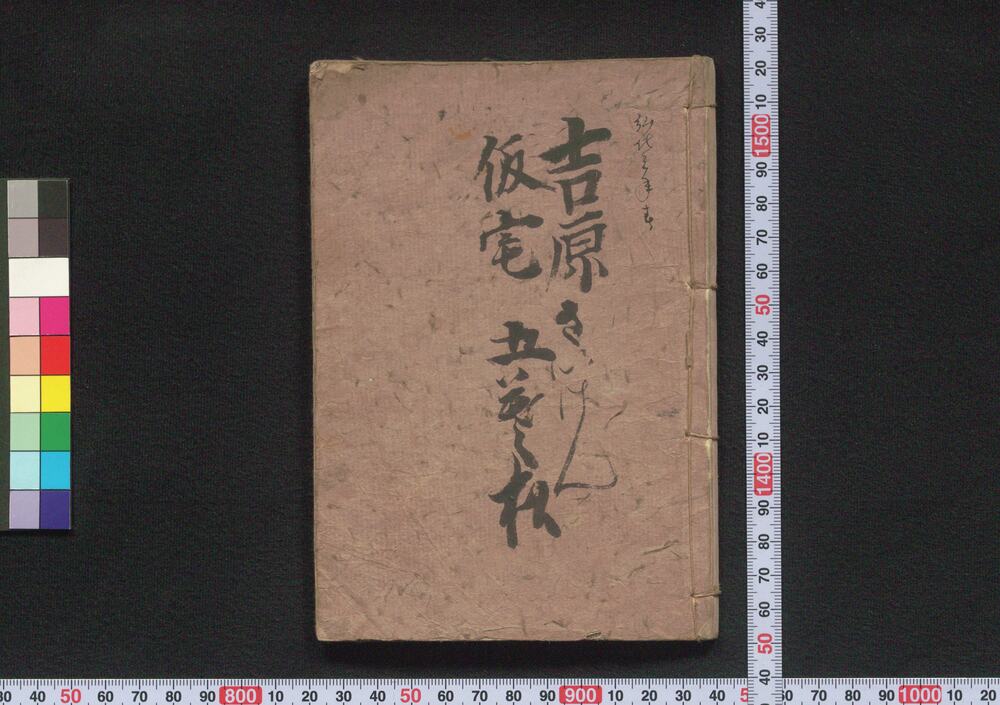 弘化三年春
吉原さいけん
仮宅 五葉松
40 30 20 10 1500 90 80 70 60 50 40 30 20 10 1400 90 80 70 60 50 40
30 40 50 60 70 80 90 800 10 20 30 40 50 60 70 80 90 900 10 20 30 40 5 60 70 80 90 1000 10 20